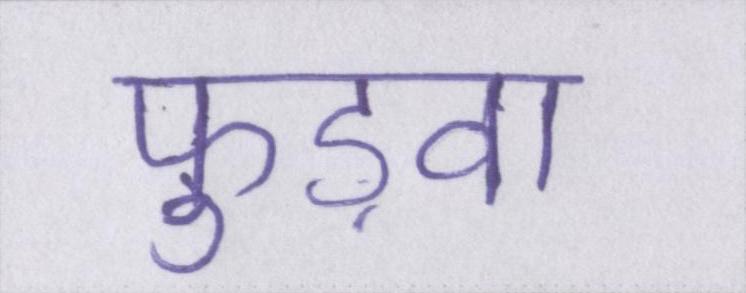 फुड़वा